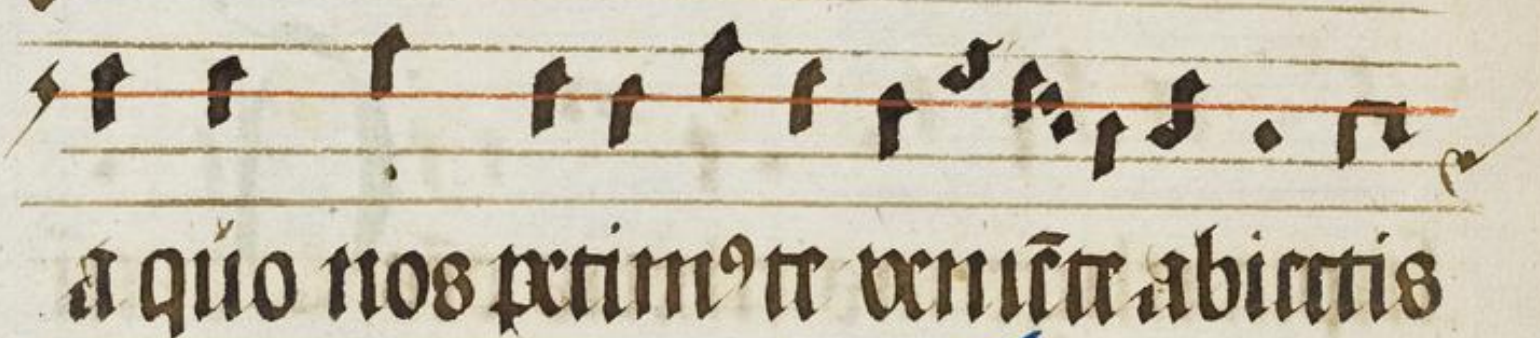 a quo nos petimꝰ te veniēte abiectis